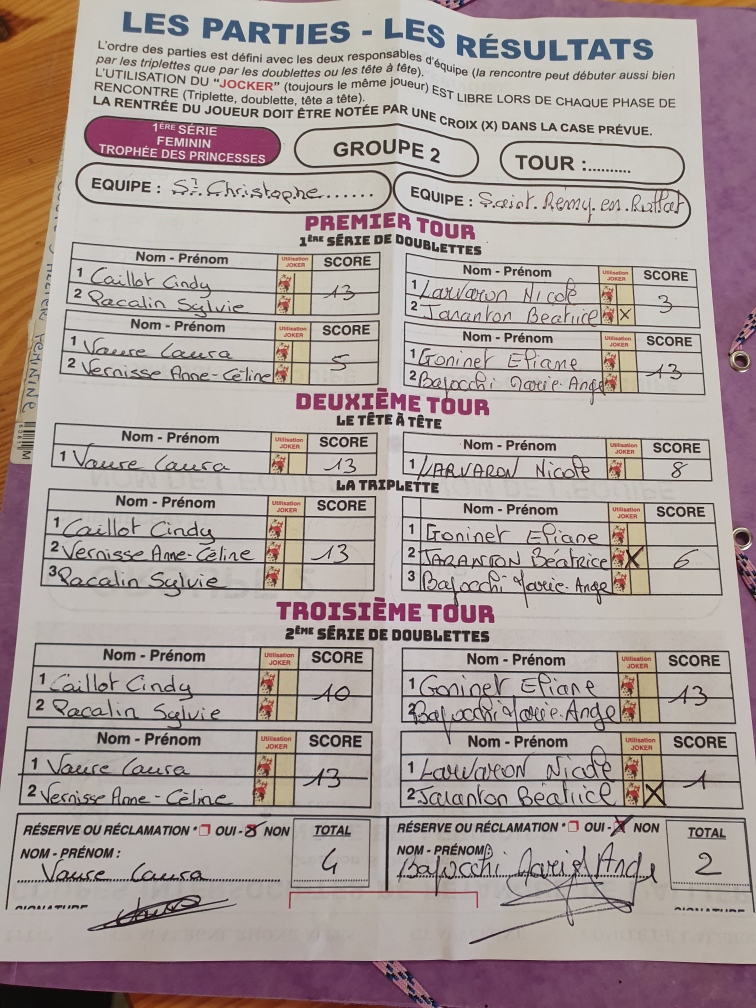 LES PARTIES - LES RÉSULTATS
L'ordre des parties est défini avec les deux responsables d'équipe (la rencontre peut débuter aussi bien
par les triplettes que par les doublettes ou les tête à tête).
L'UTILISATION DU "JOCKER" (toujours le même joueur) EST LIBRE LORS DE CHAQUE PHASE DE
RENCONTRE (Triplette, doublette, tête a tête).
LA RENTRÉE DU JOUEUR DOIT ÊTRE NOTÉE PAR UNE CROIX (X) DANS LA CASE PRÉVUE.
1ÈRE SÉRIE
FEMININ
TROPHÉE DES PRINCESSES
GROUPE 2
TOUR :..........
EQUIPE : St Christophe
EQUIPE : Saint. Rémy. en. Rollat
PREMIER TOUR
1ÈRE SÉRIE DE DOUBLETTES
Nom - Prénom Utilisation JOKER SCORE
1 Caillot Cindy
2 Racalin Sylvie
13
Nom - Prénom Utilisation JOKER SCORE
1 Larvaron Nicole
2 Jaranton Béatrice X
3
Nom - Prénom Utilisation JOKER SCORE
1 Vaure Laura
2 Vernisse Anne-Céline
5
Nom - Prénom Utilisation JOKER SCORE
1 Goninet Eliane
2 Bajocchi Marie-Ange
13
DEUXIÈME TOUR
LE TÊTE À TÊTE
Nom - Prénom Utilisation JOKER SCORE
1 Vaure Laura 13
Nom - Prénom Utilisation JOKER SCORE
1 LARVARON Nicole 8
LA TRIPLETTE
Nom - Prénom Utilisation JOKER SCORE
1 Caillot Cindy
2 Vernisse Anne-Céline 13
3 Racalin Sylvie
Nom - Prénom Utilisation JOKER SCORE
1 Goninet Eliane
2 JARANTON Béatrice X 6
3 Bajocchi Marie-Ange
TROISIÈME TOUR
2ÈME SÉRIE DE DOUBLETTES
Nom - Prénom Utilisation JOKER SCORE
1 Caillot Cindy
2 Racalin Sylvie
10
Nom - Prénom Utilisation JOKER SCORE
1 Goninet Eliane
2 Bajocchi Marie-Ange
13
Nom - Prénom Utilisation JOKER SCORE
1 Vaure Laura
2 Vernisse Anne-Céline
13
Nom - Prénom Utilisation JOKER SCORE
1 Larvaron Nicole
2 Jaranton Béatrice X
1
RÉSERVE OU RÉCLAMATION * OUI - X NON TOTAL
NOM - PRÉNOM :
Vaure Laura
4
RÉSERVE OU RÉCLAMATION * OUI - X NON TOTAL
NOM - PRÉNOM :
Bajocchi Marie Ange
2
SIGNATURE
SIGNATURE